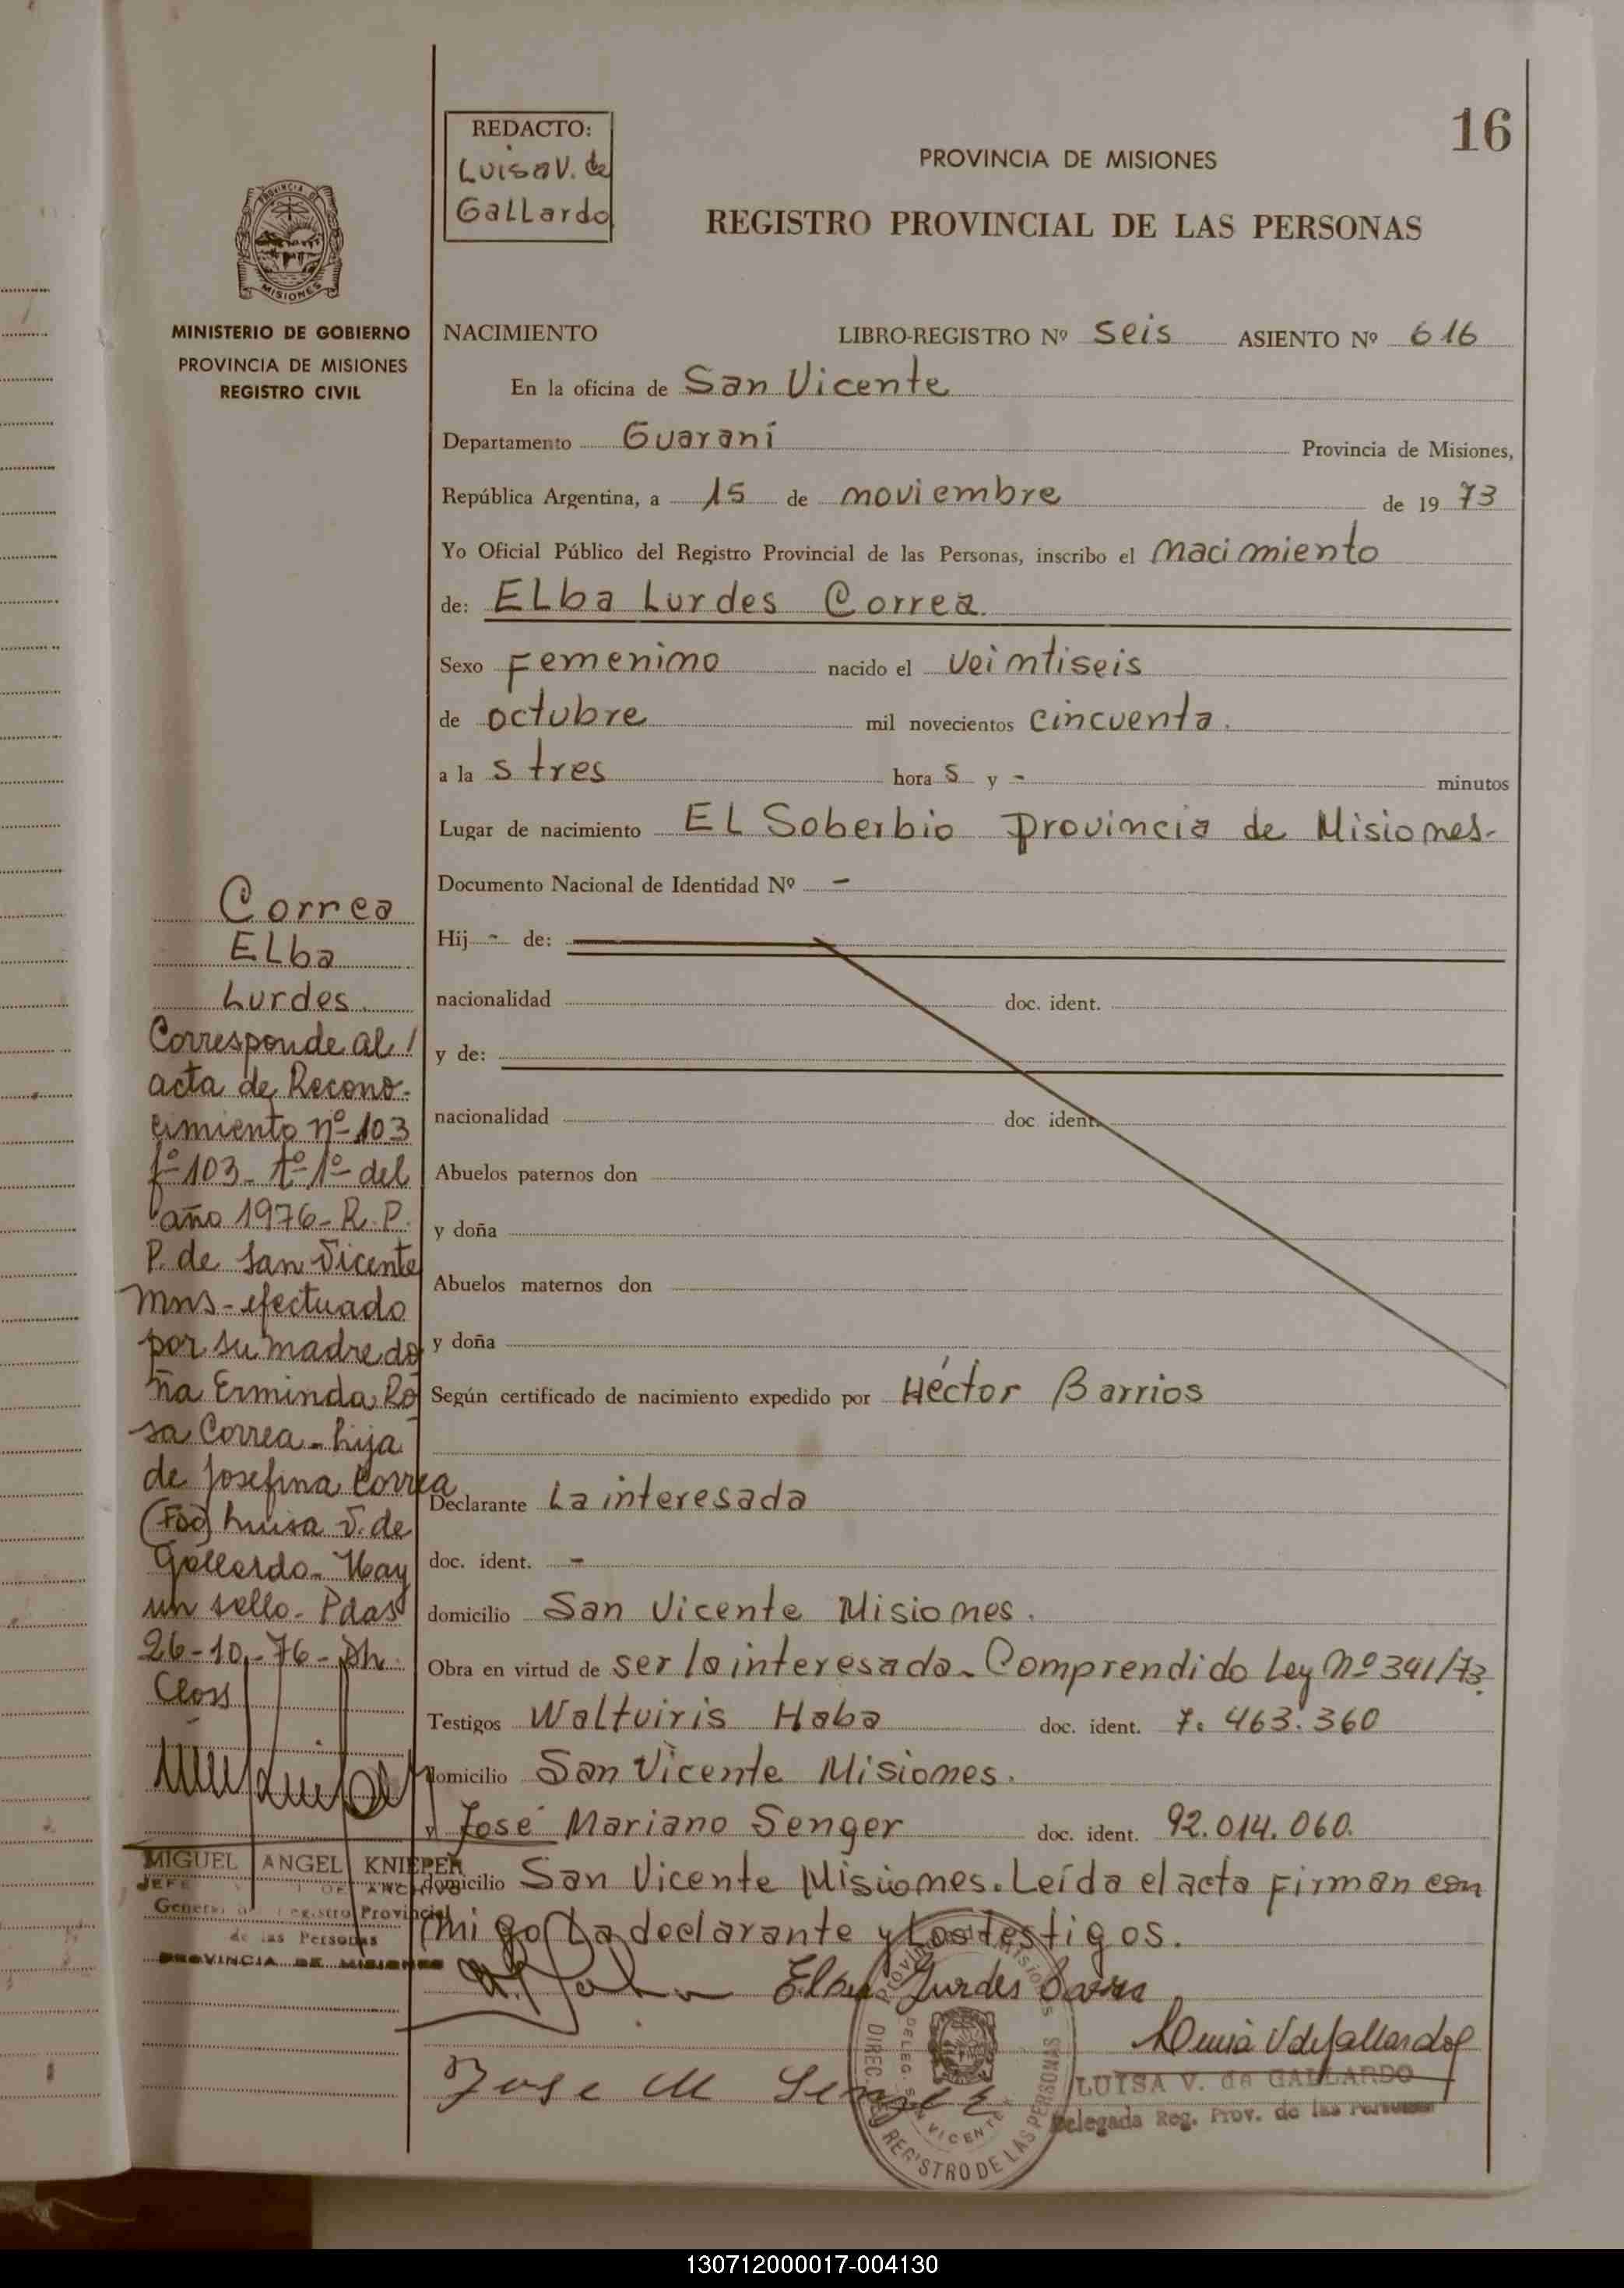 16
REDACTO:
Luisa V. de
Gallardo
PROVINCIA DE MISIONES
REGISTRO PROVINCIAL DE LAS PERSONAS
PROVINCIA DE
MISIONES
MINISTERIO DE GOBIERNO
PROVINCIA DE MISIONES
REGISTRO CIVIL
NACIMIENTO LIBRO-REGISTRO Nº Seis ASIENTO Nº 616
En la oficina de San Vicente
Departamento Guaraní Provincia de Misiones,
República Argentina, a 15 de noviembre de 1973
Yo Oficial Público del Registro Provincial de las Personas, inscribo el nacimiento
de: ELba Lurdes Correa.
Sexo Femenino nacido el veintiseis
de octubre mil novecientos cincuenta.
a la s tres hora s y - minutos
Lugar de nacimiento EL Soberbio Provincia de Misiones-
Documento Nacional de Identidad Nº -
Hij - de:
nacionalidad doc. ident.
y de:
nacionalidad doc ident.
Abuelos paternos don
y doña
Abuelos maternos don
y doña
Según certificado de nacimiento expedido por Héctor Barrios
Declarante La interesada
doc. ident. -
domicilio San Vicente Misiones.
Obra en virtud de ser la interesada. Comprendido Ley Nº 341/73.
Testigos Waltuiris Haba doc. ident. 7.463.360
domicilio San Vicente Misiones.
y José Mariano Senger doc. ident. 92.014.060.
domicilio San Vicente Misiones. Leída el acta firman con
migo La declarante y Los testigos.
Correa
ELba
Lurdes.
Corresponde al
acta de Recono-
cimiento nº 103
fº 103- tº 1º del
año 1976- R. P.
P. de San Vicente
Mns- efectuado
por su madre do
ña Erminda Ro
sa Correa- hija
de Josefina Correa
(Fdo) Luisa V. de
Gallardo- Hay
un sello- Pdas
26-10-76-
Closs
MIGUEL ANGEL KNIEPER
JEFE DE ARCHIVO
General del Registro Provincial
de las Personas
PROVINCIA DE MISIONES
Elba Lurdes Correa
Luisa V de Gallardo
Jose M Senger
LUISA V. de GALLARDO
Delegada Reg. Prov. de las Personas
DIREC. REGISTRO DE LAS PERSONAS
DELEG. SAN VICENTE
130712000017-004130